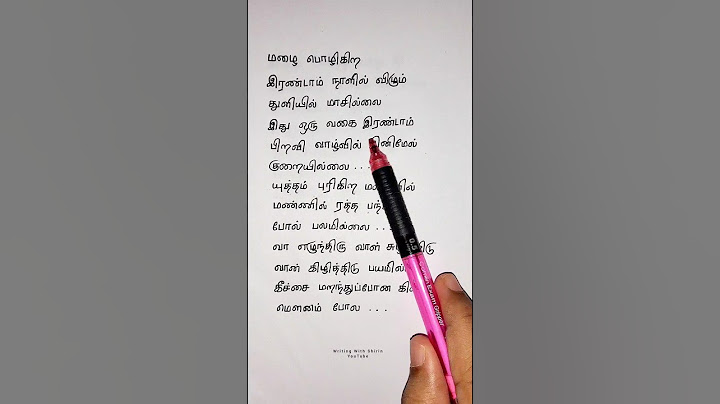 மழை பொழிகிற
இரண்டாம் நாளில் விழும்
துளியில் மாசில்லை
இது ஒரு வகை இரண்டாம்
பிறவி வாழ்வில்
குறையில்லை ...
யுத்தம் புரிகிற
மண்ணில் ரத்த
போல் பலமில்லை ...
வா எழுந்திரு வாள்
வான் கிழித்திடு
கீச்சை மறந்துப்போன
மௌனம் போல ...
Writing With Shirin
YouTube
0.5